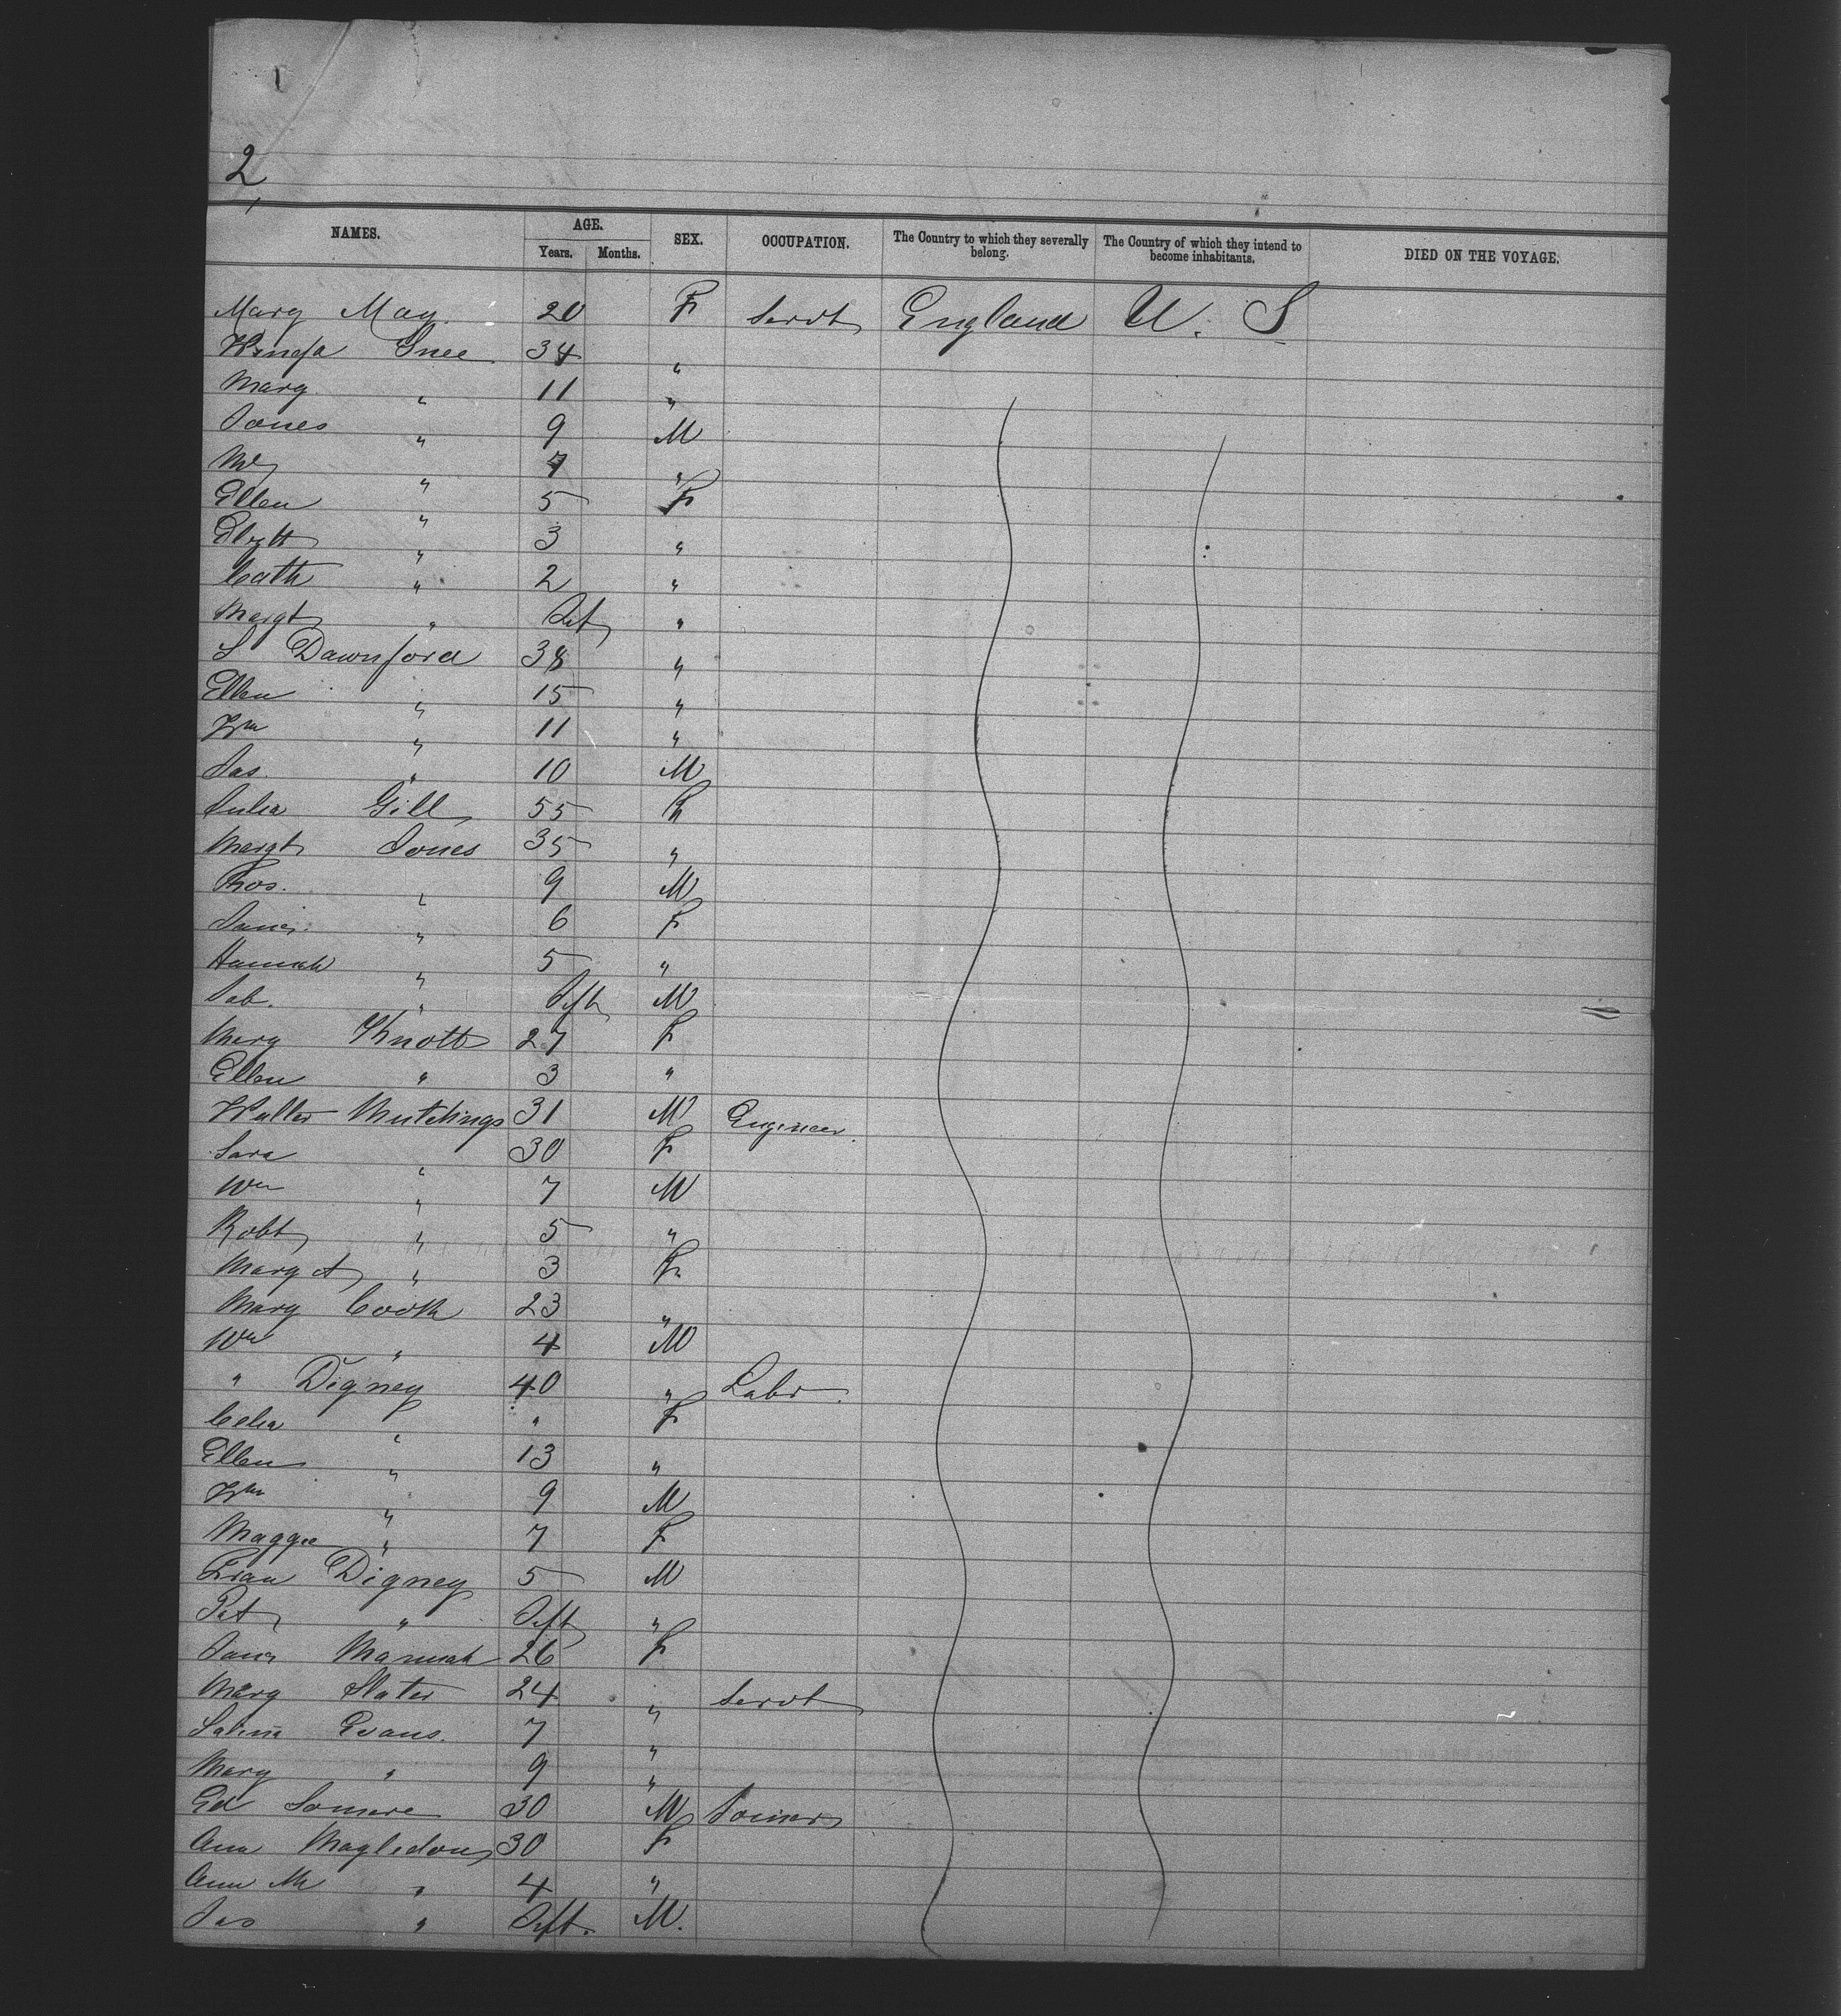 1
2
NAMES. AGE. Years. Months. SEX. OCCUPATION. The Country to which they severally belong. The Country of which they intend to become inhabitants. DIED ON THE VOYAGE.
Mary May 20 F Servt England U. S
34 "
Mary " 11 "
James " 9 M
" 7 "
Ellen " 5 F
" 3 "
Cath " 2 "
Margt " "
S Dawnford 38 "
Ellen " 15 "
" 11 "
Jas. " 10 M
Julia Gill 55 F
Margt Jones 35 "
Thos. " 9 M
" 6 F
Hannah " 5 "
" Inft M
Mary Knott 27 F
Ellen " 3 "
Walter Mutchings 31 M Engineer.
Sara " 30 F
Wm " 7 M
Robt " 5 "
Margt " 3 F
Mary Cook 23 "
Wm " 4 M
" Digney 40 " Labr
Celia " " F
Ellen " 13 "
" 9 M
Maggie " 7 F
Fran Digney 5 M
Pat " Inft "
26 F
Mary Slater 24 " Servt
Evans. 7 "
Mary " 9 "
Ed 30 M Joiner
Ann 30 F
Ann M " 4 "
Jas " Inft. M.